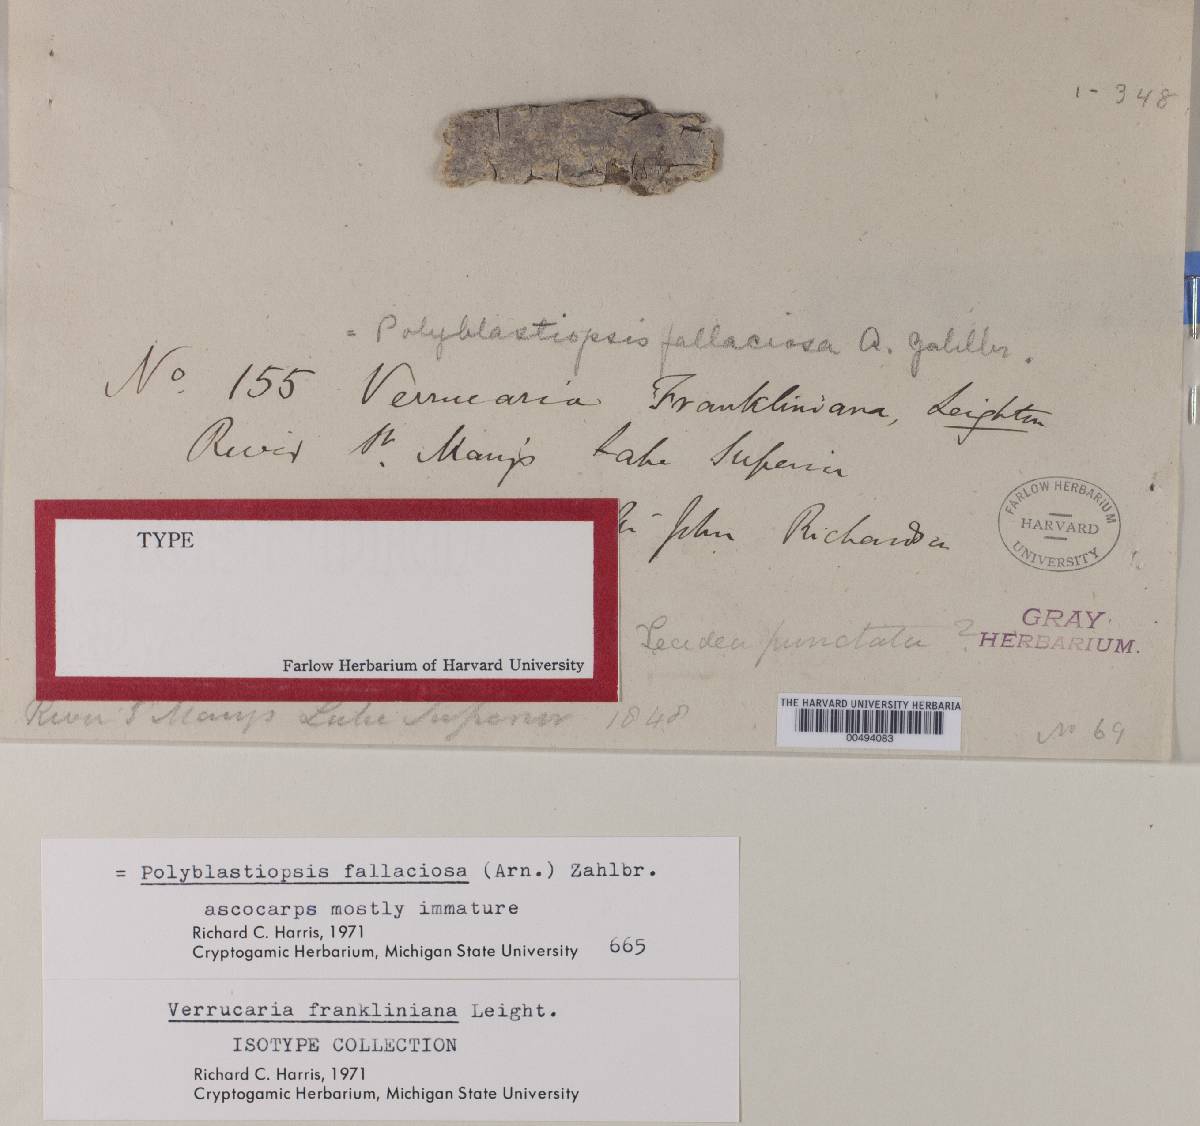 1 - 348
= Polyblastiopsis fallaciosa A. Zahlbr.
No. 155 Verrucaria Frankliniana, Leighton
River St. Mary's Lake Superior
Sir John Richardson
FARLOW HERBARIUM
HARVARD
UNIVERSITY
TYPE
Farlow Herbarium of Harvard University
Lecidea punctata ?
GRAY
HERBARIUM.
River St Marys Lake Superior 1848
THE HARVARD UNIVERSITY HERBARIA
00494083
No 69
= Polyblastiopsis fallaciosa (Arn.) Zahlbr.
ascocarps mostly immature
Richard C. Harris, 1971
Cryptogamic Herbarium, Michigan State University 665
Verrucaria frankliniana Leight.
ISOTYPE COLLECTION
Richard C. Harris, 1971
Cryptogamic Herbarium, Michigan State University